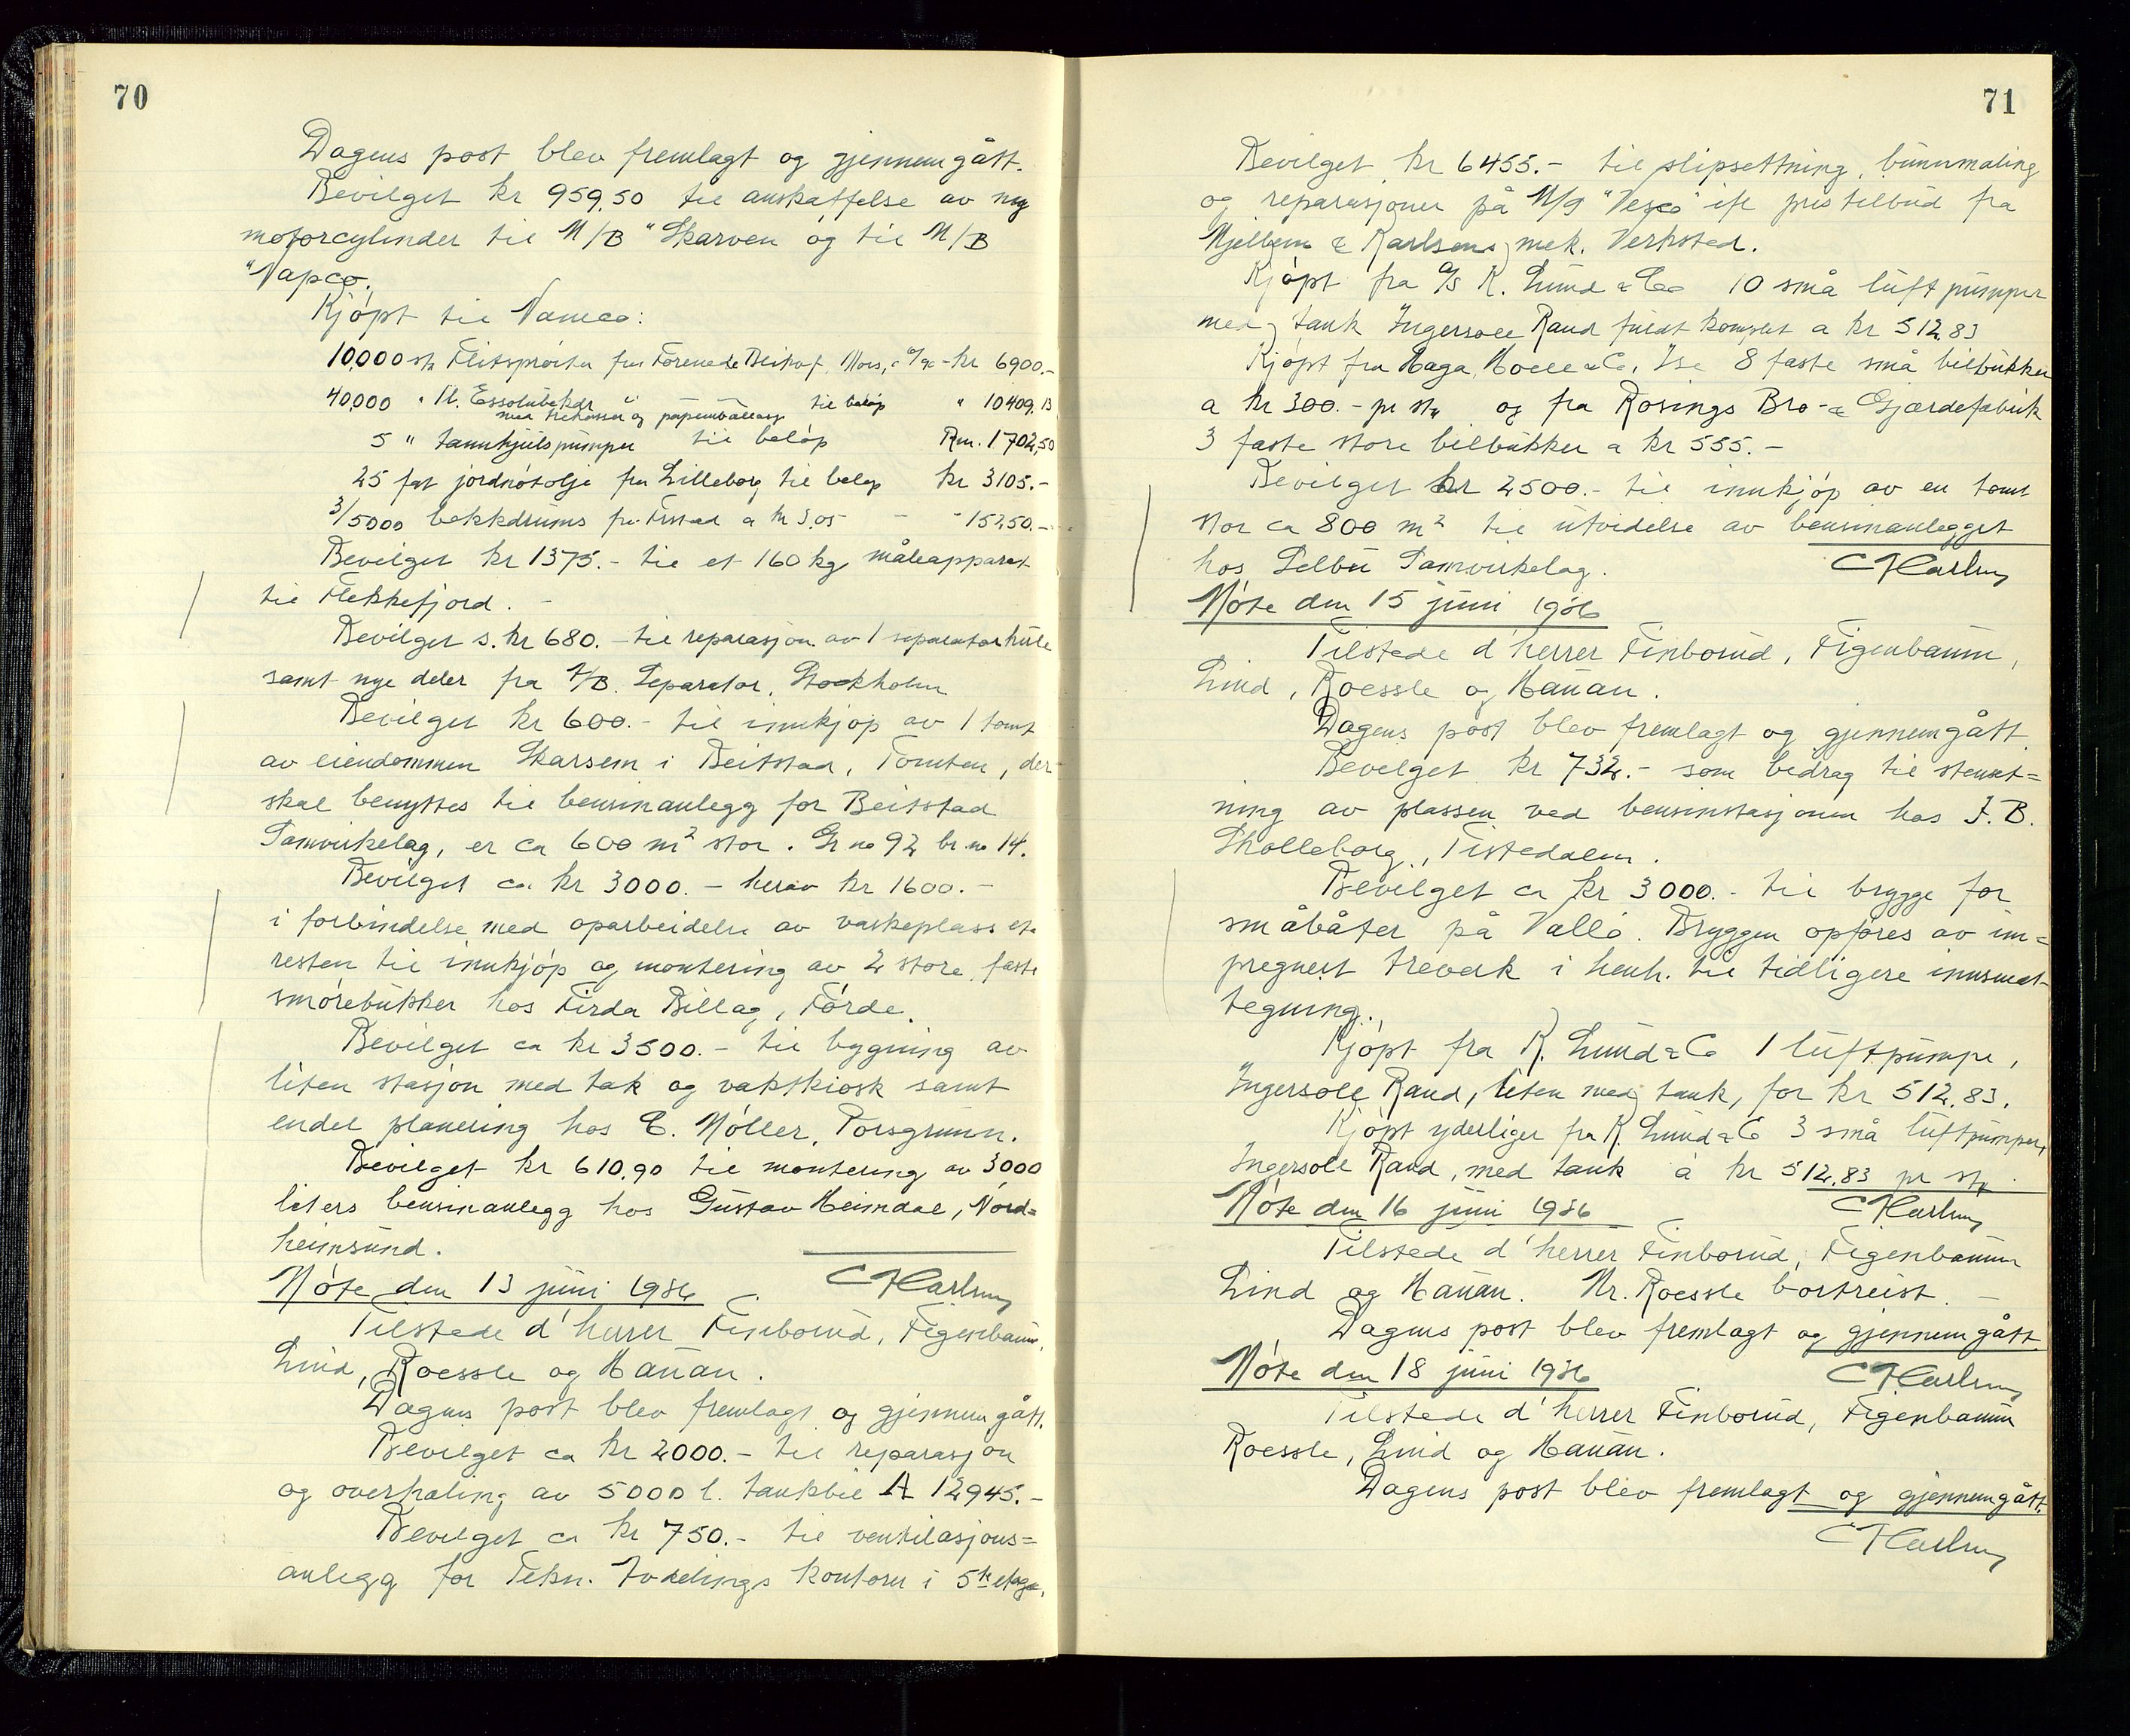 70
Dagens post blev fremlagt og gjennemgått.
Bevilget kr 959.50 til anskaffelse av ny
motorcylinder til M/B "Skarven og til M/B
"Vapco.
Kjøpt til Vameco:
10,000 stk Flitsprøiter fra Forenede Blikemb. Moss, a % - kr 6900.-
40,000 " fl. Essolube til beløp " 10409.13
med trekasser og papemballasje
5 " tannhjulspumper til beløp Rm. 1702,50
25 fat jordnøtolje fra Lilleborg til beløp kr 3105.-
3/5000 bekkdrums fra a kr 3.05 - " 15250.-
Bevilget kr 1375.- til et 160 kg måleapparat
til Flekkefjord.
Bevilget s.kr 680.- til reparasjon av 1 separatorkule
samt nye deler fra A/B. Separator, Stockholm
Bevilget kr 600.- til innkjøp av 1 tomt
av eiendommen Skarsem i Beitstad, Tomten, der
skal benyttes til bensinanlegg for Beitstad
Samvirkelag, er ca 600 m² stor. Gr no 92 br. no 14.
Bevilget ca kr 3000.- herav kr 1600.-
i forbindelse med oparbeidelse av vaskeplass etc
resten til innkjøp og montering av 2 store faste
smørebukker hos Firda Billag, Førde.
Bevilget ca kr 3500.- til bygning av
liten stasjon med tak og vaktkiosk samt
endel planering hos E. Møller, Porsgrunn.
Bevilget kr 610.90 til montering av 3000
liters bensinanlegg hos Gustav Heimdal, Nord=
heimsund.
Møte den 13 juni 1936
Tilstede d'herrer Finborud, Figenbaum,
Lind, Roessle og Hanan.
Dagens post blev fremlagt og gjennemgått.
Bevilget ca kr 2000.- til reparasjon
og overhaling av 5000 l. tankbil A 12945.-
Bevilget ca kr 750.- til ventilasjons=
anlegg for Tekn. Avdelings kontorer i 5te etage.
71
Bevilget kr 6455.- til slipsettning, bunnmaling
og reparasjoner på M/S "Vesco" ifl pristilbud fra
Mjellem & Karlsens mek. Verksted.
Kjøpt fra A/S K. Lund & Co 10 små luftpumper
med tank Ingersoll Rand fuldt komplet a kr 512.83
Kjøpt fra Haga, Moell & Co, Ise 8 faste små bilbukker
a kr 300.- pr stk og fra Rosings Bro- & Gjærdefabrik
3 faste store bilbukker a kr 555.-
Bevilget kr 2500.- til innkjøp av en tomt
stor ca 800 m² til utvidelse av bensinanlegget
hos Selbu Samvirkelag.
Møte den 15 juni 1936
Tilstede d'herrer Finborud, Figenbaum,
Lind, Roessle og Hanan.
Dagens post blev fremlagt og gjennemgått.
Bevilget kr 732.- som bedrag til stenset=
ning av plassen ved bensinstasjonen hos J.B.
Skolleborg, Tistedalen.
Bevilget ca kr 3000.- til brygge for
småbåter på Vallø. Bryggen opføres av im=
pregnert treverk i henh. til tidligere innsendt
tegning.
Kjøpt fra K. Lund & Co 1 luftpumpe,
Ingersoll Rand, liten med tank, for kr 512.83.
Kjøpt yderliger fra K. Lund & Co 3 små luftpumper,
Ingersoll Rand, med tank a kr 512.83 pr stk.
Møte den 16 juni 1936
Tilstede d'herrer Finborud, Figenbaum
Lind og Hanan. Mr. Roessle bortreist.
Dagens post blev fremlagt og gjennemgått.
Møte den 18 juni 1936
Tilstede d'herrer Finborud, Figenbaum
Roessle, Lind og Hanan.
Dagens post blev fremlagt og gjennemgått.